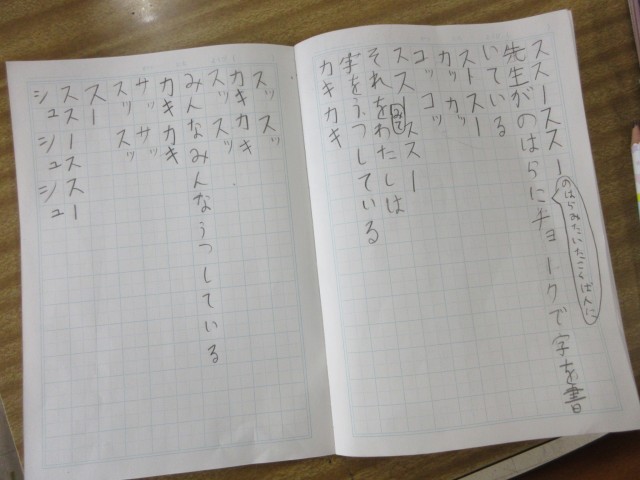 ススーススー
先生がのはらにチョークで字を書
のはらみたいたこくばんに
いている
ストスー
カッ カッ
コッ コッ
ススーススー
それをわたしは
字をうつしている
カキカキ
スッ スッ
カキカキ
スッ スッ
みんなみんなうつしている
カキカキ
サッ サッ
スッ スッ
スー
ススースススー
シュ シュ シュー